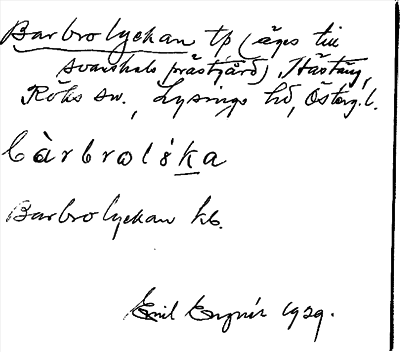 Barbrolyckan tp (äges till
Svanhals prästgård), Hästäng,
Röks sn., Lysings hd, Österg. l.
bàrbrolýka
Barbrolyckan kb.
Emil 1929.